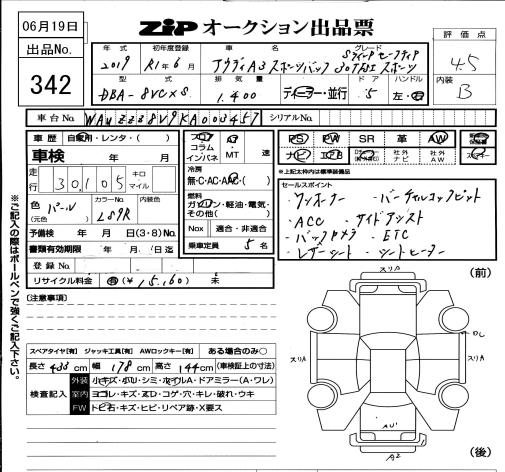 06月19日
ZIP オークション出品票
出品No.
342
評価点
4.5
内装
B
年式
2019
初年度登録
R1年6月
車名
アウディA3 スポーツバック 30TFSI スポーツ
グレード
型式
DBA-8VCXS
排気量
1,400
ディーラー・並行
ドア
5
ハンドル
左・右
車台No.
WAUZZZ8V9KA003457
シリアルNo.
車歴
自家用・レンタ・( )
車検
年 月
走行
30,105
キロ
マイル
色
(元色)
パール
カラーNo.
L9R
内装色
予備検
年 月 日(3・8)No.
書類有効期限
年 月 日迄
登録No.
リサイクル料金
有(¥15,160) 未
フロア
コラム
インパネ
AT
MT
速
冷房
無・C・AC・AAC・( )
燃料
ガソリン・軽油・電気・
その他( )
Nox
適合・非適合
乗車定員
5名
PS
PW
SR
革
AW
ナビ
エアB
社外
ナビ
社外
AW
*上記太枠内は標準装備品
セールスポイント
・ワンオーナー ・バーチャルコックピット
・ACC ・サイドアシスト
・バックカメラ ・ETC
・レザーシート ・シートヒーター
※ご記入の際はボールペンで強くご記入下さい。
[注意事項]
スペアタイヤ[有] ジャッキ工具[有] AWロックキー[有] ある場合のみ○
長さ 433 cm 幅 178 cm 高さ 144 cm (車検証上の寸法)
検査記入
外装
小キズ・小U・シミ・ホイルA・ドアミラー(A・ワレ)
室内
ヨゴレ・キズ・スD・コゲ・穴・キレ・破れ・ウキ
FW
トビ石・キズ・ヒビ・リペア跡・X要ス
(前)
スリA
スリA
スリA
AU
A2
(後)